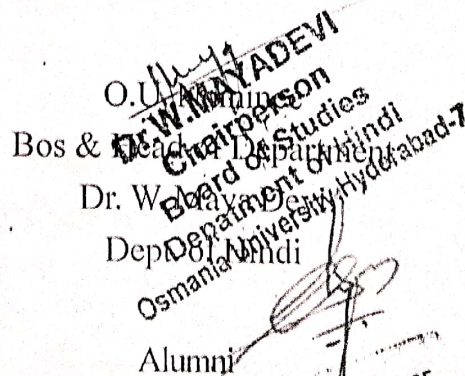 O.U. Nominee
Bos & Head of Department
Dr. W. Maya Devi
Dept. of Hindi
Dr. W. MAYADEVI
Chairperson
Board of Studies
Depatment of Hindi
Osmania University, Hyderabad-7
Alumni